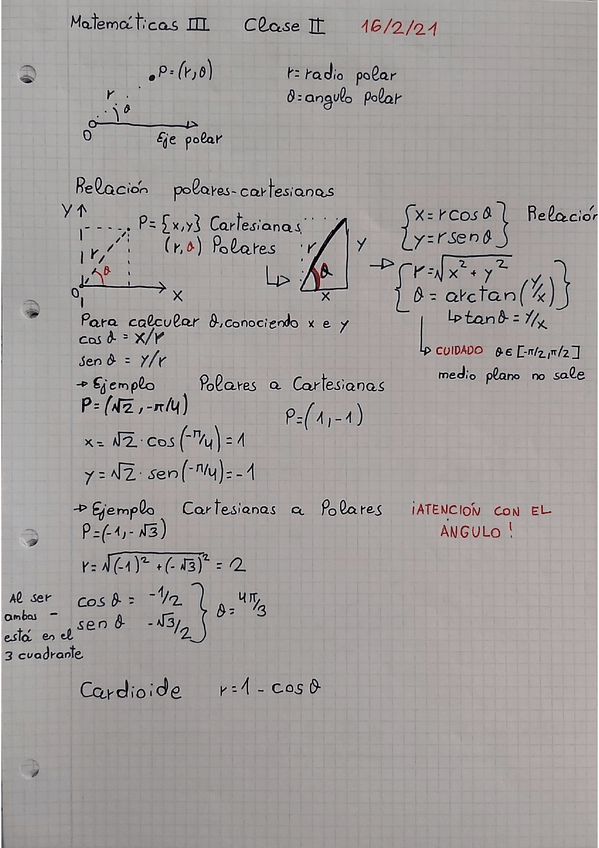 Matemáticas III Clase II 16/2/21
P=(r,θ)
r
θ
O
Eje polar
r=radio polar
θ=angulo polar
Relación polares-cartesianas
Y
P={x,y} Cartesianas
(r,θ) Polares
r
θ
O
X
r
θ
Y
X
{x=rcosθ
y=rsenθ} Relación
{r=√x²+y²
θ=arctan(y/x)}
↳tanθ=y/x
↳ CUIDADO θ∈[-π/2,π/2]
medio plano no sale
Para calcular θ,conociendo x e y
cosθ=x/r
senθ=y/r
→Ejemplo Polares a Cartesianas
P=(√2,-π/4)
P=(1,-1)
x=√2·cos(-π/4)=1
y=√2·sen(-π/4)=-1
→Ejemplo Cartesianas a Polares ¡ATENCIÓN CON EL
ÁNGULO!
P=(-1,-√3)
r=√(-1)²+(-√3)²=2
Al ser
ambas -
está en el
3 cuadrante
cosθ= -1/2
senθ -√3/2
} θ=4π/3
Cardioide r=1-cosθ